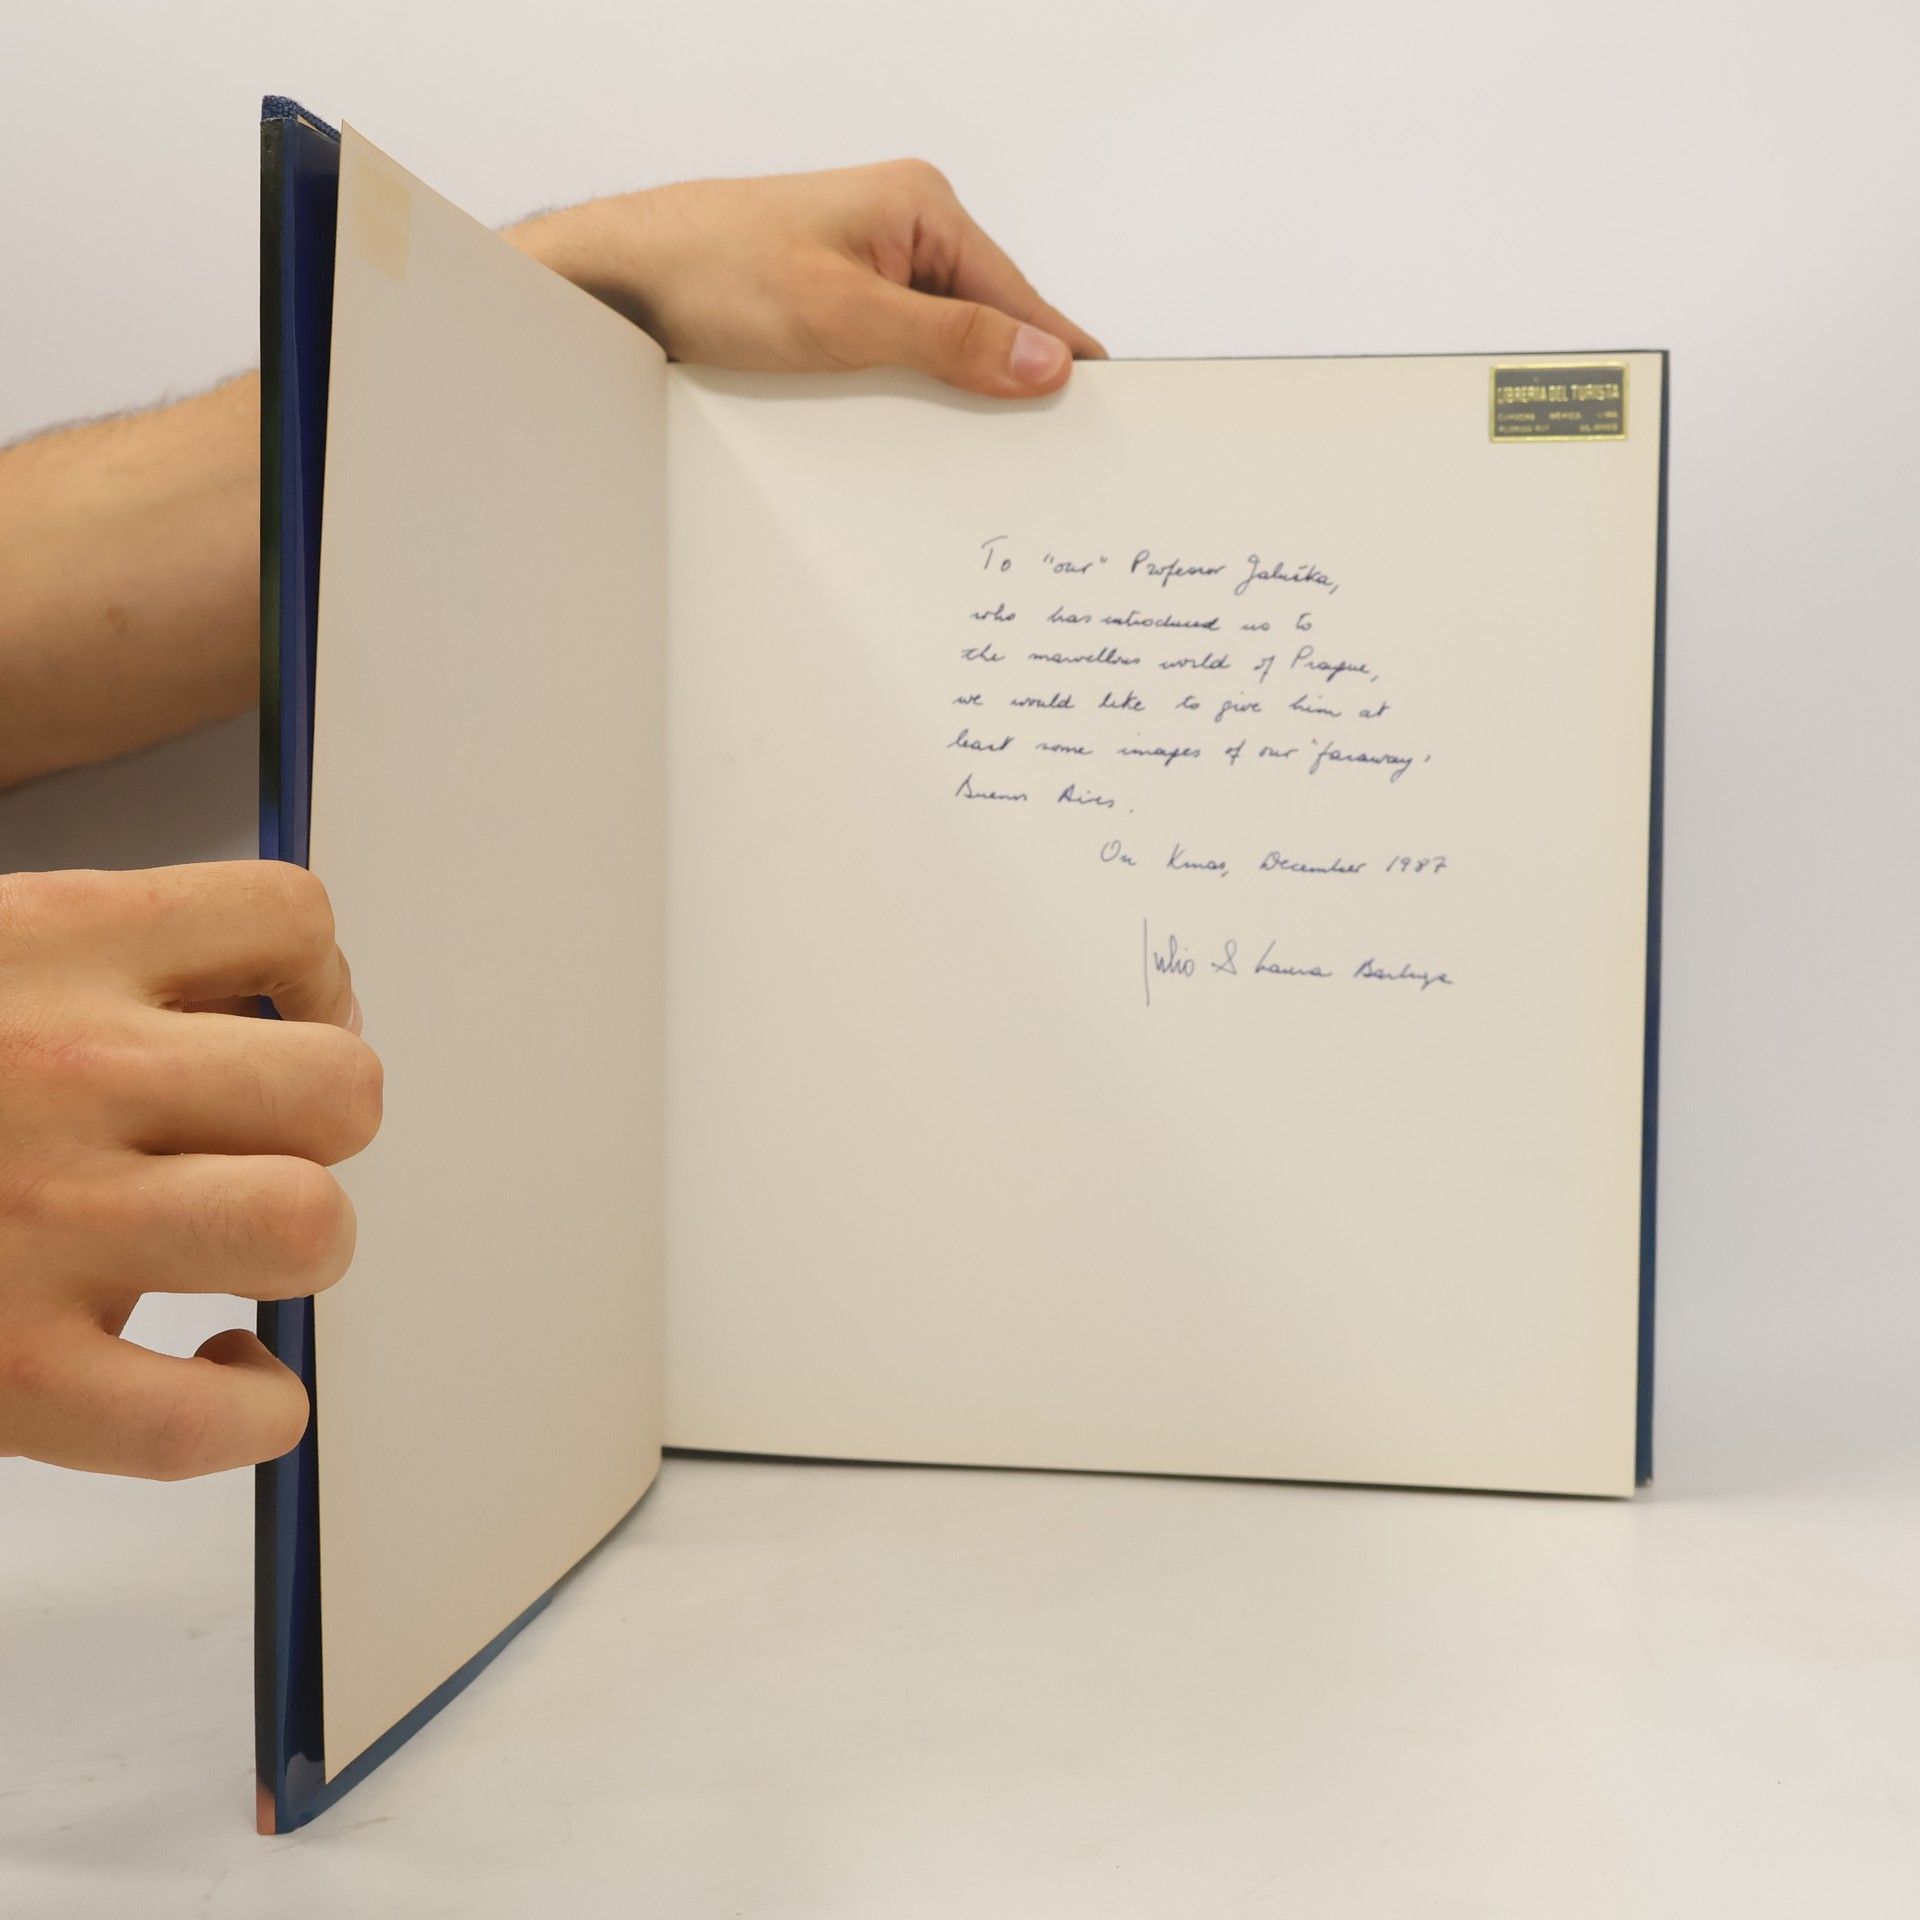 LIBRERIA DEL TURISTA
To "our" Professor Jaluška,
who has introduced us to
the marvellous world of Prague,
we would like to give him at
least some images of our "faraway"
Buenos Aires.
On Xmas, December 1987
Julio & Laura